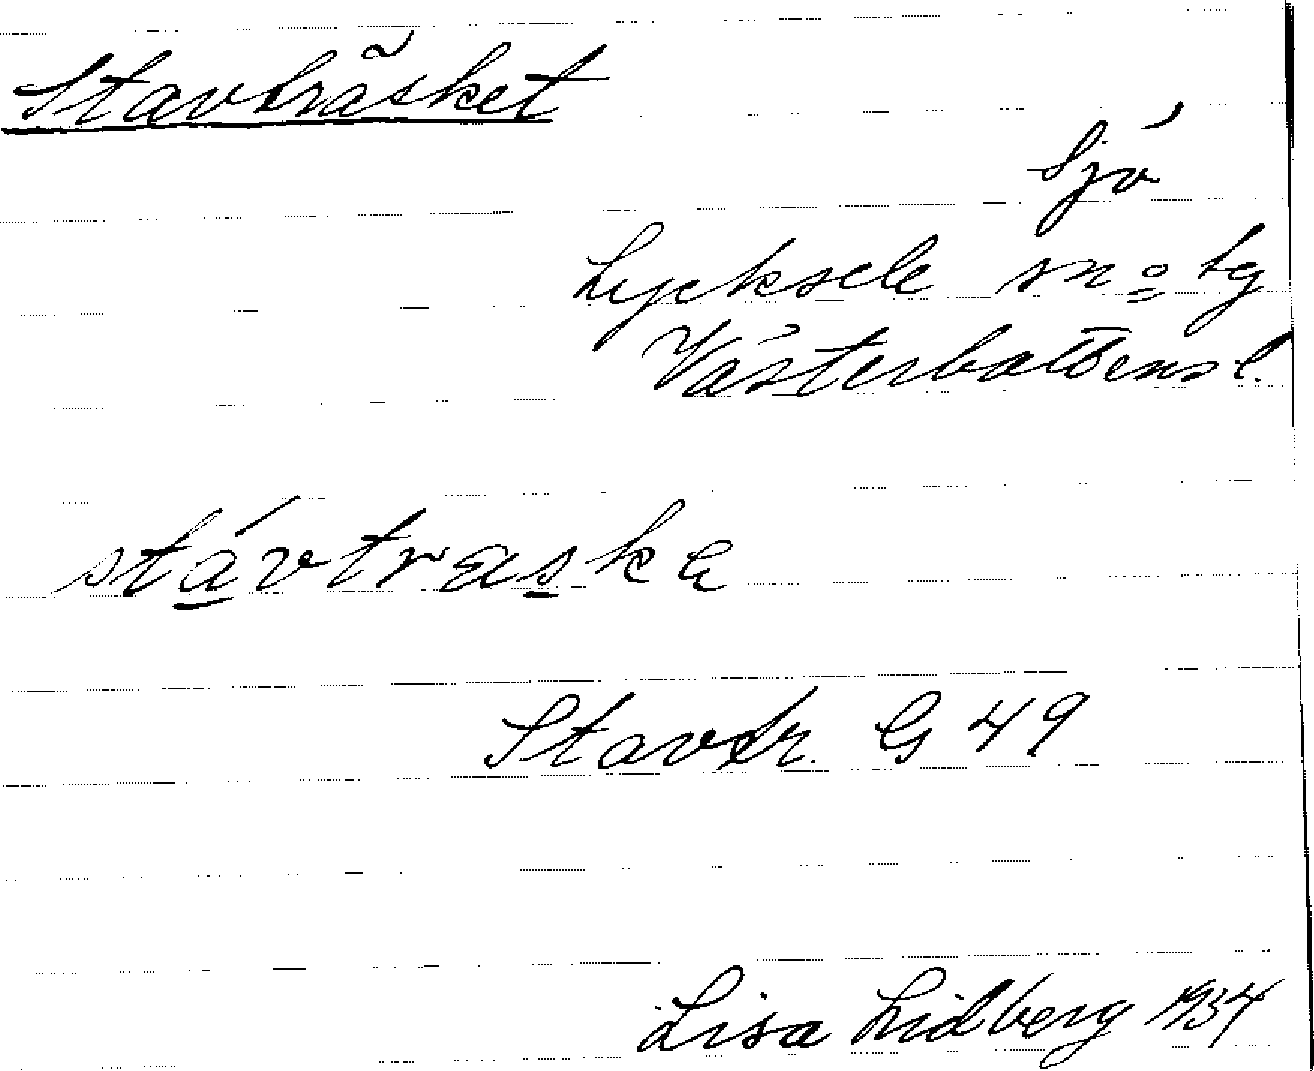 Stavträsket
Sjö
Lycksele sn o tg
Västerbottens l.
stávtraska
Stavtr. G 49
Lisa Lidberg 1934